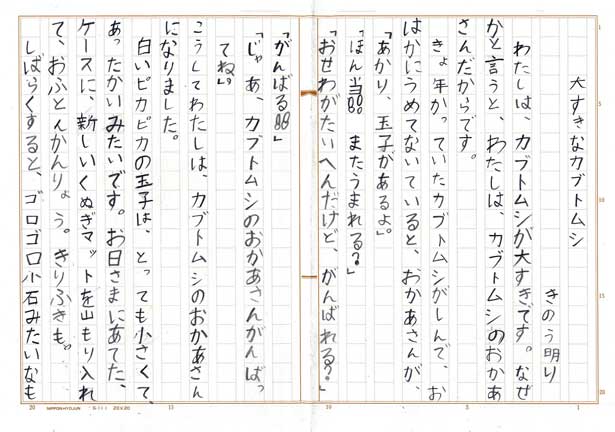 大すきなカブトムシ
きのう明り
わたしは、カブトムシが大すきです。なぜ
かと言うと、わたしは、カブトムシのおかあ
さんだからです。
きょ年かっていたカブトムシがしんで、お
はかにうめてないていると、おかあさんが、
「あかり、玉子があるよ。」
「ほん当!?またうまれる?」
「おせわがたいへんだけど、がんばれる?」
「がんばる!!」
「じゃあ、カブトムシのおかあさんがんばっ
てね。」
こうしてわたしは、カブトムシのおかあさん
になりました。
白いピカピカの玉子は、とっても小さくて、
あったかいみたいです。お日さまにあてた、
ケースに、新しいくぬぎマットを山もり入れ
て、おふとんかんりょう。きりふきも。
しばらくすると、ゴロゴロ小石みたいなも
1
5
10
15
20
1
5
10
15
20
NIPPON HYOJUN S-111 20×20